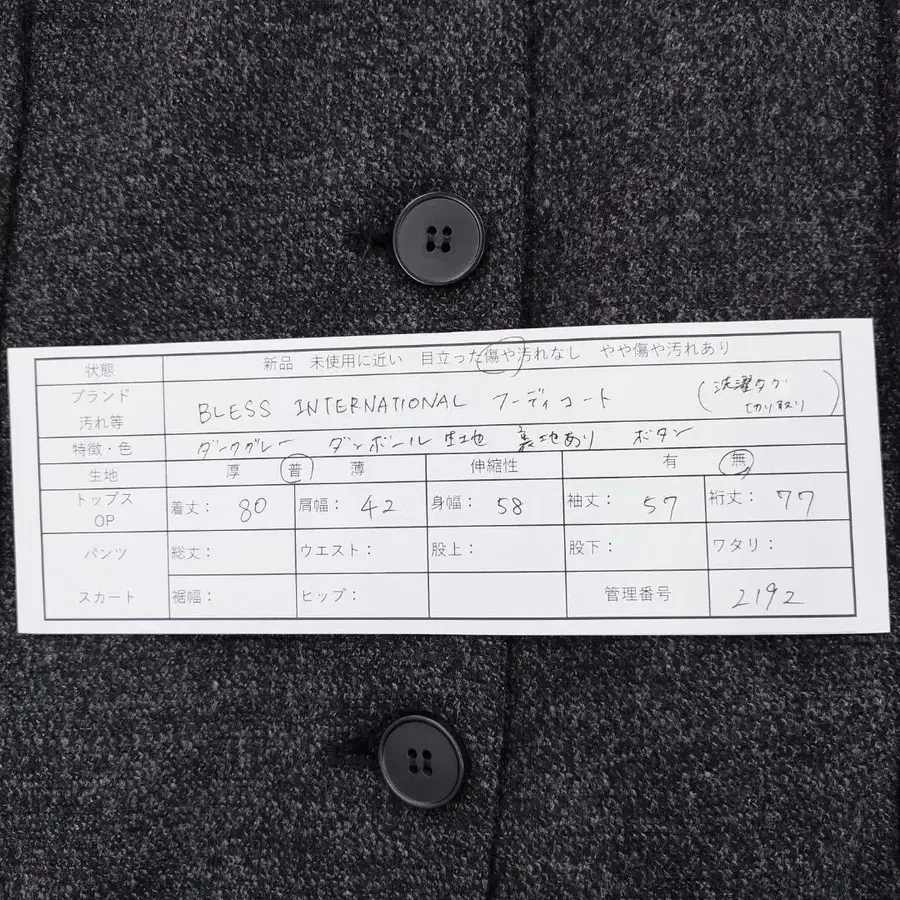 状態 新品 未使用に近い 目立った傷や汚れなし やや傷や汚れあり
ブランド 汚れ等 BLESS INTERNATIONAL フーディコート (洗濯タグ 切り取り)
特徴・色 ダークグレー ダンボール生地 裏地あり ボタン
生地 厚 普 薄 伸縮性 有 無
トップス OP 着丈: 80 肩幅: 42 身幅: 58 袖丈: 57 裄丈: 77
パンツ 総丈: ウエスト: 股上: 股下: ワタリ:
スカート 裾幅: ヒップ: 管理番号 2192